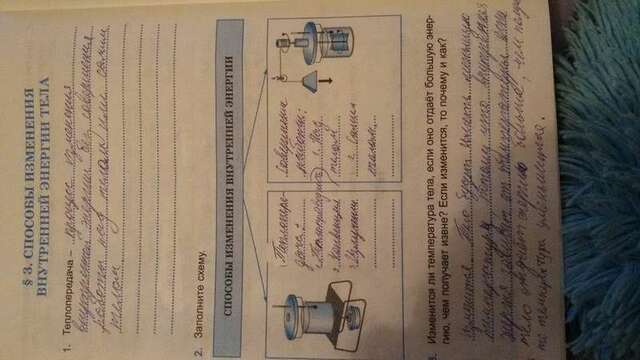 § 3. СПОСОБЫ ИЗМЕНЕНИЯ
ВНУТРЕННЕЙ ЭНЕРГИИ ТЕЛА
1. Теплопередача – процесс изменения
внутренней энергии без совершения
работы над телом или самим
телом
2. Заполните схему.
СПОСОБЫ ИЗМЕНЕНИЯ ВНУТРЕННЕЙ ЭНЕРГИИ
Теплопере-
дача:
Теплопроводность
Конвекция
Излучение
Совершение
работы:
1. Над
телом
2. Самим
телом
3. Изменится ли температура тела, если оно отдаёт большую энер-
гию, чем получает извне? Если изменится, то почему и как?
изменится. Тело будет иметь меньшую
температуру. Потому что внутренняя
энергия зависит от температуры. Если
тело отдаёт энергию больше, чем
то температура уменьшится.